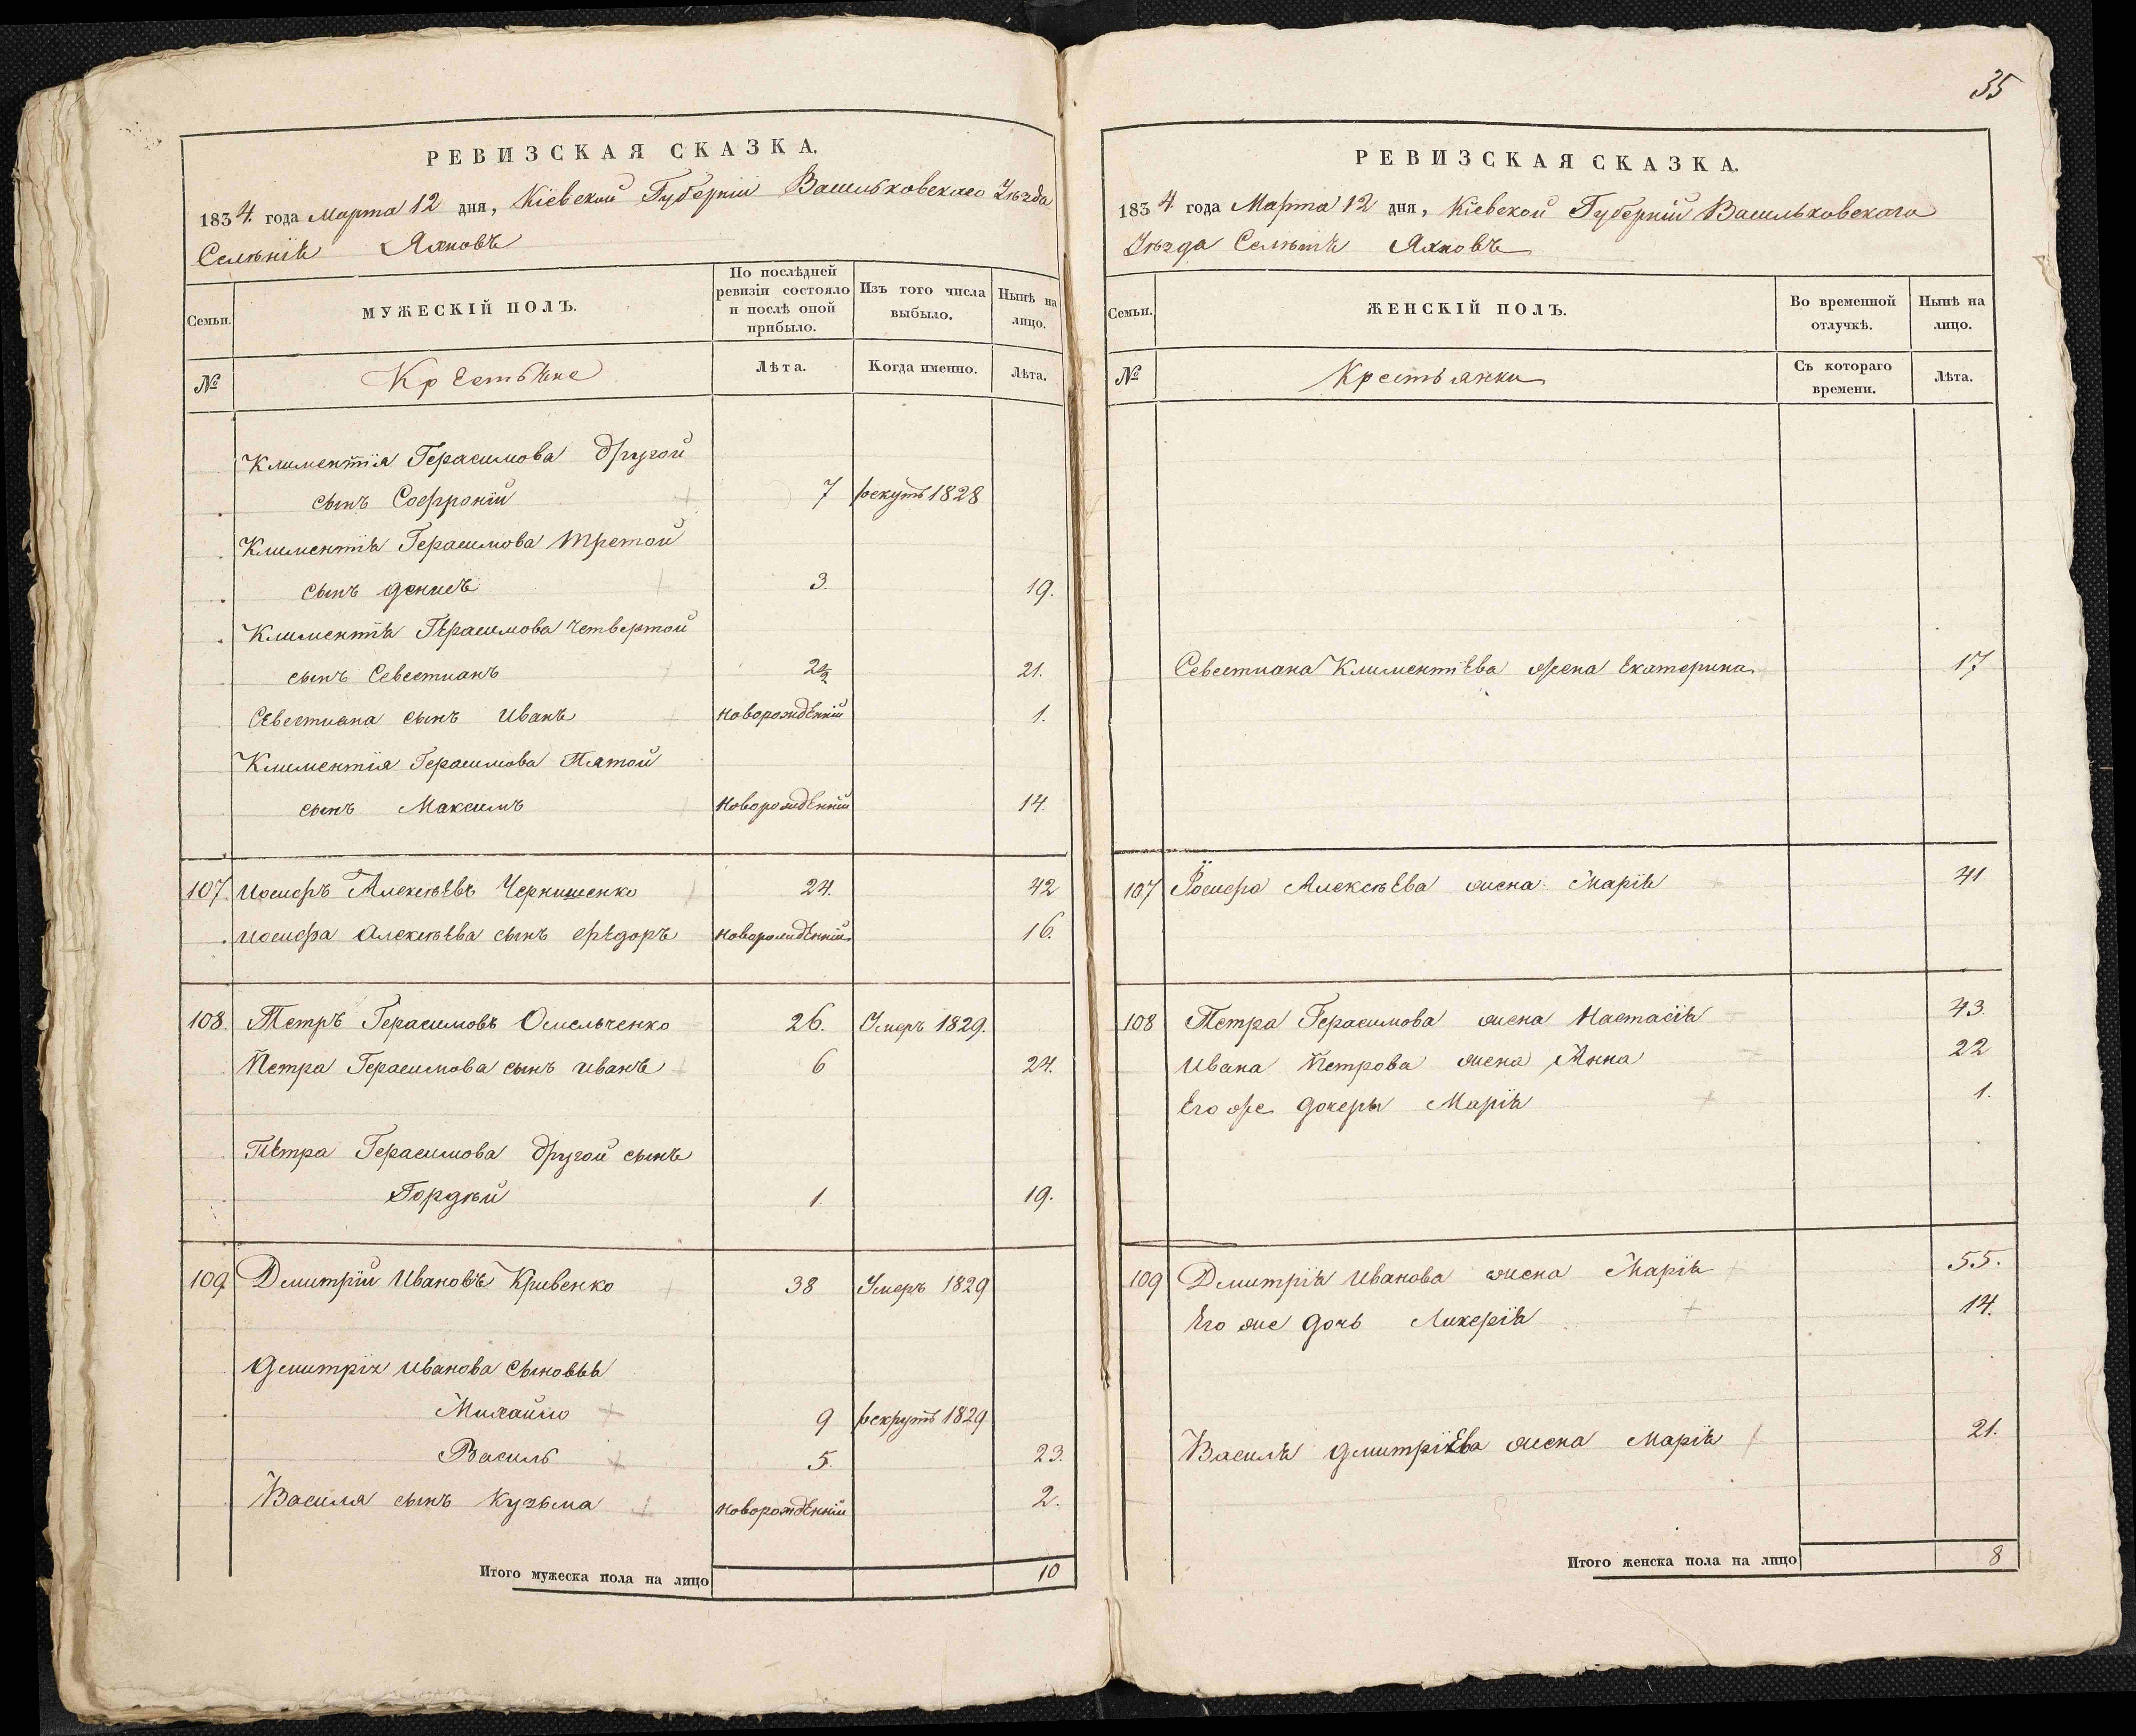 РЕВИЗСКАЯ СКАЗКА.
1834 года Марта 12 дня, Кіевской Губерніи Васильковскаго Уѣзда
Селѣнія Яхновъ
Семьи.
МУЖЕСКІЙ ПОЛЪ.
По послѣдней ревизіи состояло и послѣ оной прибыло.
Изъ того числа выбыло.
Нынѣ на лицо.
№
Крестьяне
Лѣта.
Когда именно.
Лѣта.
Климентія Герасимова другой
сынъ Софроній 7 рекутъ 1828
Климентія Герасимова третой
сынъ Денисъ 3. 19.
Климентія Герасимова четвертой
сынъ Севестианъ 2½ 21.
Севестиана сынъ Иванъ новорожденній 1.
Климентія Герасимова Пятой
сынъ Максимъ новорожденній 14.
107. Иосифъ Алексѣевъ Чернишенко 24. 42
Иосифа Алексѣева сынъ Федоръ новорожденній 16.
108. Петръ Герасимовъ Омельченко 26. Умеръ 1829.
Петра Герасимова сынъ Иванъ 6 24.
Петра Герасимова другой сынъ
Гордѣй 1. 19.
109 Дмитрій Ивановъ Кривенко 38 Умеръ 1829
Дмитрія Иванова Сыновья
Михайло 9 рекрутъ 1829
Василь 5. 23.
Василя сынъ Кузьма новорожденній 2.
Итого мужеска пола на лицо 10
35
РЕВИЗСКАЯ СКАЗКА.
1834 года Марта 12 дня, Кіевской Губерніи Васильковскаго
Уѣзда Яхновъ
Семьи.
ЖЕНСКІЙ ПОЛЪ.
Во временной отлучкѣ.
Нынѣ на лицо.
№
Крестьянки
Съ котораго времени.
Лѣта.
Севестиана Климентіева жена Екатерина 17
107 Іосифа Алексѣева жена Марія 41
108 Петра Герасимова жена Настасія 43.
Ивана Петрова жена Анна 22
Его же дочеры Марія 1.
109 Дмитрія Иванова жена Марія 55.
Его же дочь Ликерія 14.
Василя Дмитріева жена Марія 21.
Итого женска пола на лицо 8